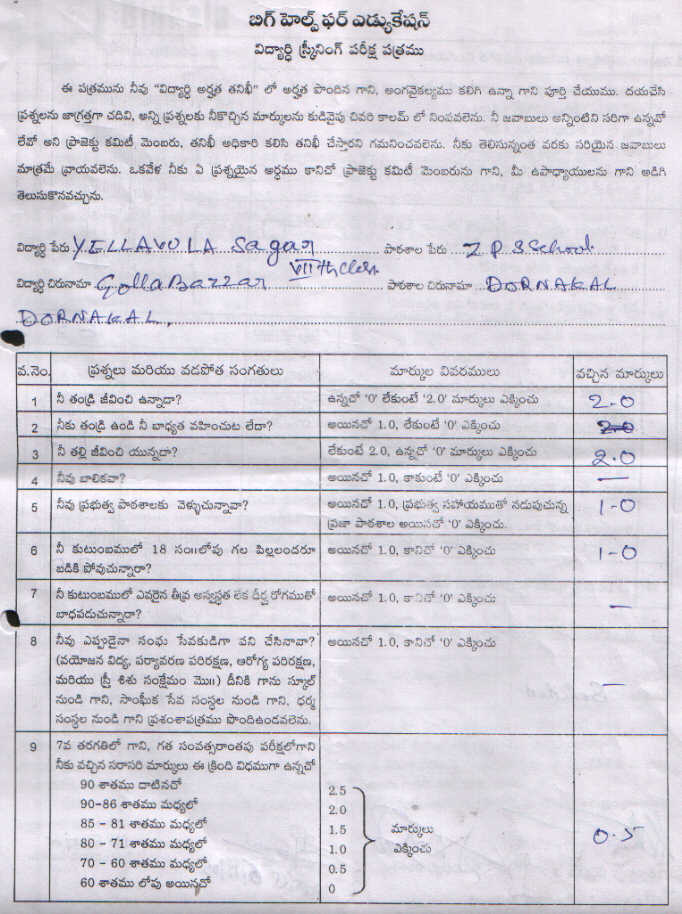 బిగ్ హెల్ప్ ఫర్ ఎడ్యుకేషన్
విద్యార్ధి స్క్రీనింగ్ పరీక్ష పత్రము
ఈ పత్రమును నీవు "విద్యార్ధి అర్హత తనిఖీ" లో అర్హత పొందిన గాని, అంగవైకల్యము కలిగి ఉన్నా గాని పూర్తి చేయుము. దయచేసి
ప్రశ్నలను జాగ్రత్తగా చదివి, అన్ని ప్రశ్నలకు నీకొచ్చిన మార్కులను కుడివైపు చివరి కాలమ్ లో నింపవలెను. నీ జవాబులు అన్నింటిని సరిగా ఉన్నవో
లేవో అని ప్రాజెక్టు కమిటీ మెంబరు, తనిఖీ అధికారి కలిసి తనిఖీ చేస్తారని గమనించవలెను. నీకు తెలిసున్నంత వరకు సరియైన జవాబులు
మాత్రమే వ్రాయవలెను. ఒకవేళ నీకు ఏ ప్రశ్నయైన అర్ధము కానిచో ప్రాజెక్టు కమిటీ మెంబరును గాని, మీ ఉపాధ్యాయులను గాని అడిగి
తెలుసుకొనవచ్చును.
విద్యార్ధి పేరు YELLAVULA Sagar పాఠశాల పేరు Z P S School
VIIth class
విద్యార్ధి చిరునామా GollaBazzar పాఠశాల చిరునామా DORNAKAL
DORNAKAL,
వ.నెం. ప్రశ్నలు మరియు వడపోత సంగతులు మార్కుల వివరములు వచ్చిన మార్కులు
1 నీ తండ్రి జీవించి ఉన్నాడా? ఉన్నచో '0' లేకుంటే '2.0' మార్కులు ఎక్కించు 2.0
2 నీకు తండ్రి ఉండి నీ బాధ్యత వహించుట లేదా? అయినచో 1.0, లేకుంటే '0' ఎక్కించు 2.0
3 నీ తల్లి జీవించి యున్నదా? లేకుంటే 2.0, ఉన్నచో '0' మార్కులు ఎక్కించు 2.0
4 నీవు బాలికవా? అయినచో 1.0, కాకుంటే '0' ఎక్కించు —
5 నీవు ప్రభుత్వ పాఠశాలకు వెళ్ళుచున్నావా? అయినచో 1.0, ప్రభుత్వ సహాయముతో నడుపుచున్న 1-0
ప్రజా పాఠశాల అయినచో '0' ఎక్కించు.
6 నీ కుటుంబములో 18 సం॥లోపు గల పిల్లలందరూ అయినచో 1.0, కానిచో '0' ఎక్కించు 1-0
బడికి పోవుచున్నారా?
7 నీ కుటుంబములో ఎవరైన తీవ్ర అస్వస్థత లేక దీర్ఘ రోగముతో అయినచో 1.0, కానిచో '0' ఎక్కించు —
బాధపడుచున్నారా?
8 నీవు ఎప్పుడైనా సంఘ సేవకుడిగా పని చేసినావా? అయినచో 1.0, కానిచో '0' ఎక్కించు —
(వయోజన విద్య, పర్యావరణ పరిరక్షణ, ఆరోగ్య పరిరక్షణ,
మరియు స్త్రీ శిశు సంక్షేమం మొ॥) దీనికి గాను స్కూల్
నుండి గాని, సాంఘీక సేవ సంస్థల నుండి గాని, ధర్మ
సంస్థల నుండి గాని ప్రశంశాపత్రము పొందిఉండవలెను.
9 7వ తరగతిలో గాని, గత సంవత్సరాంతపు పరీక్షలోగాని
నీకు వచ్చిన సరాసరి మార్కులు ఈ క్రింది విధముగా ఉన్నచో
90 శాతము దాటినచో 2.5
90-86 శాతము మధ్యలో 2.0
85 - 81 శాతము మధ్యలో 1.5 మార్కులు 0.5
80 - 71 శాతము మధ్యలో 1.0 ఎక్కించు
70 - 60 శాతము మధ్యలో 0.5
60 శాతము లోపు అయినచో 0